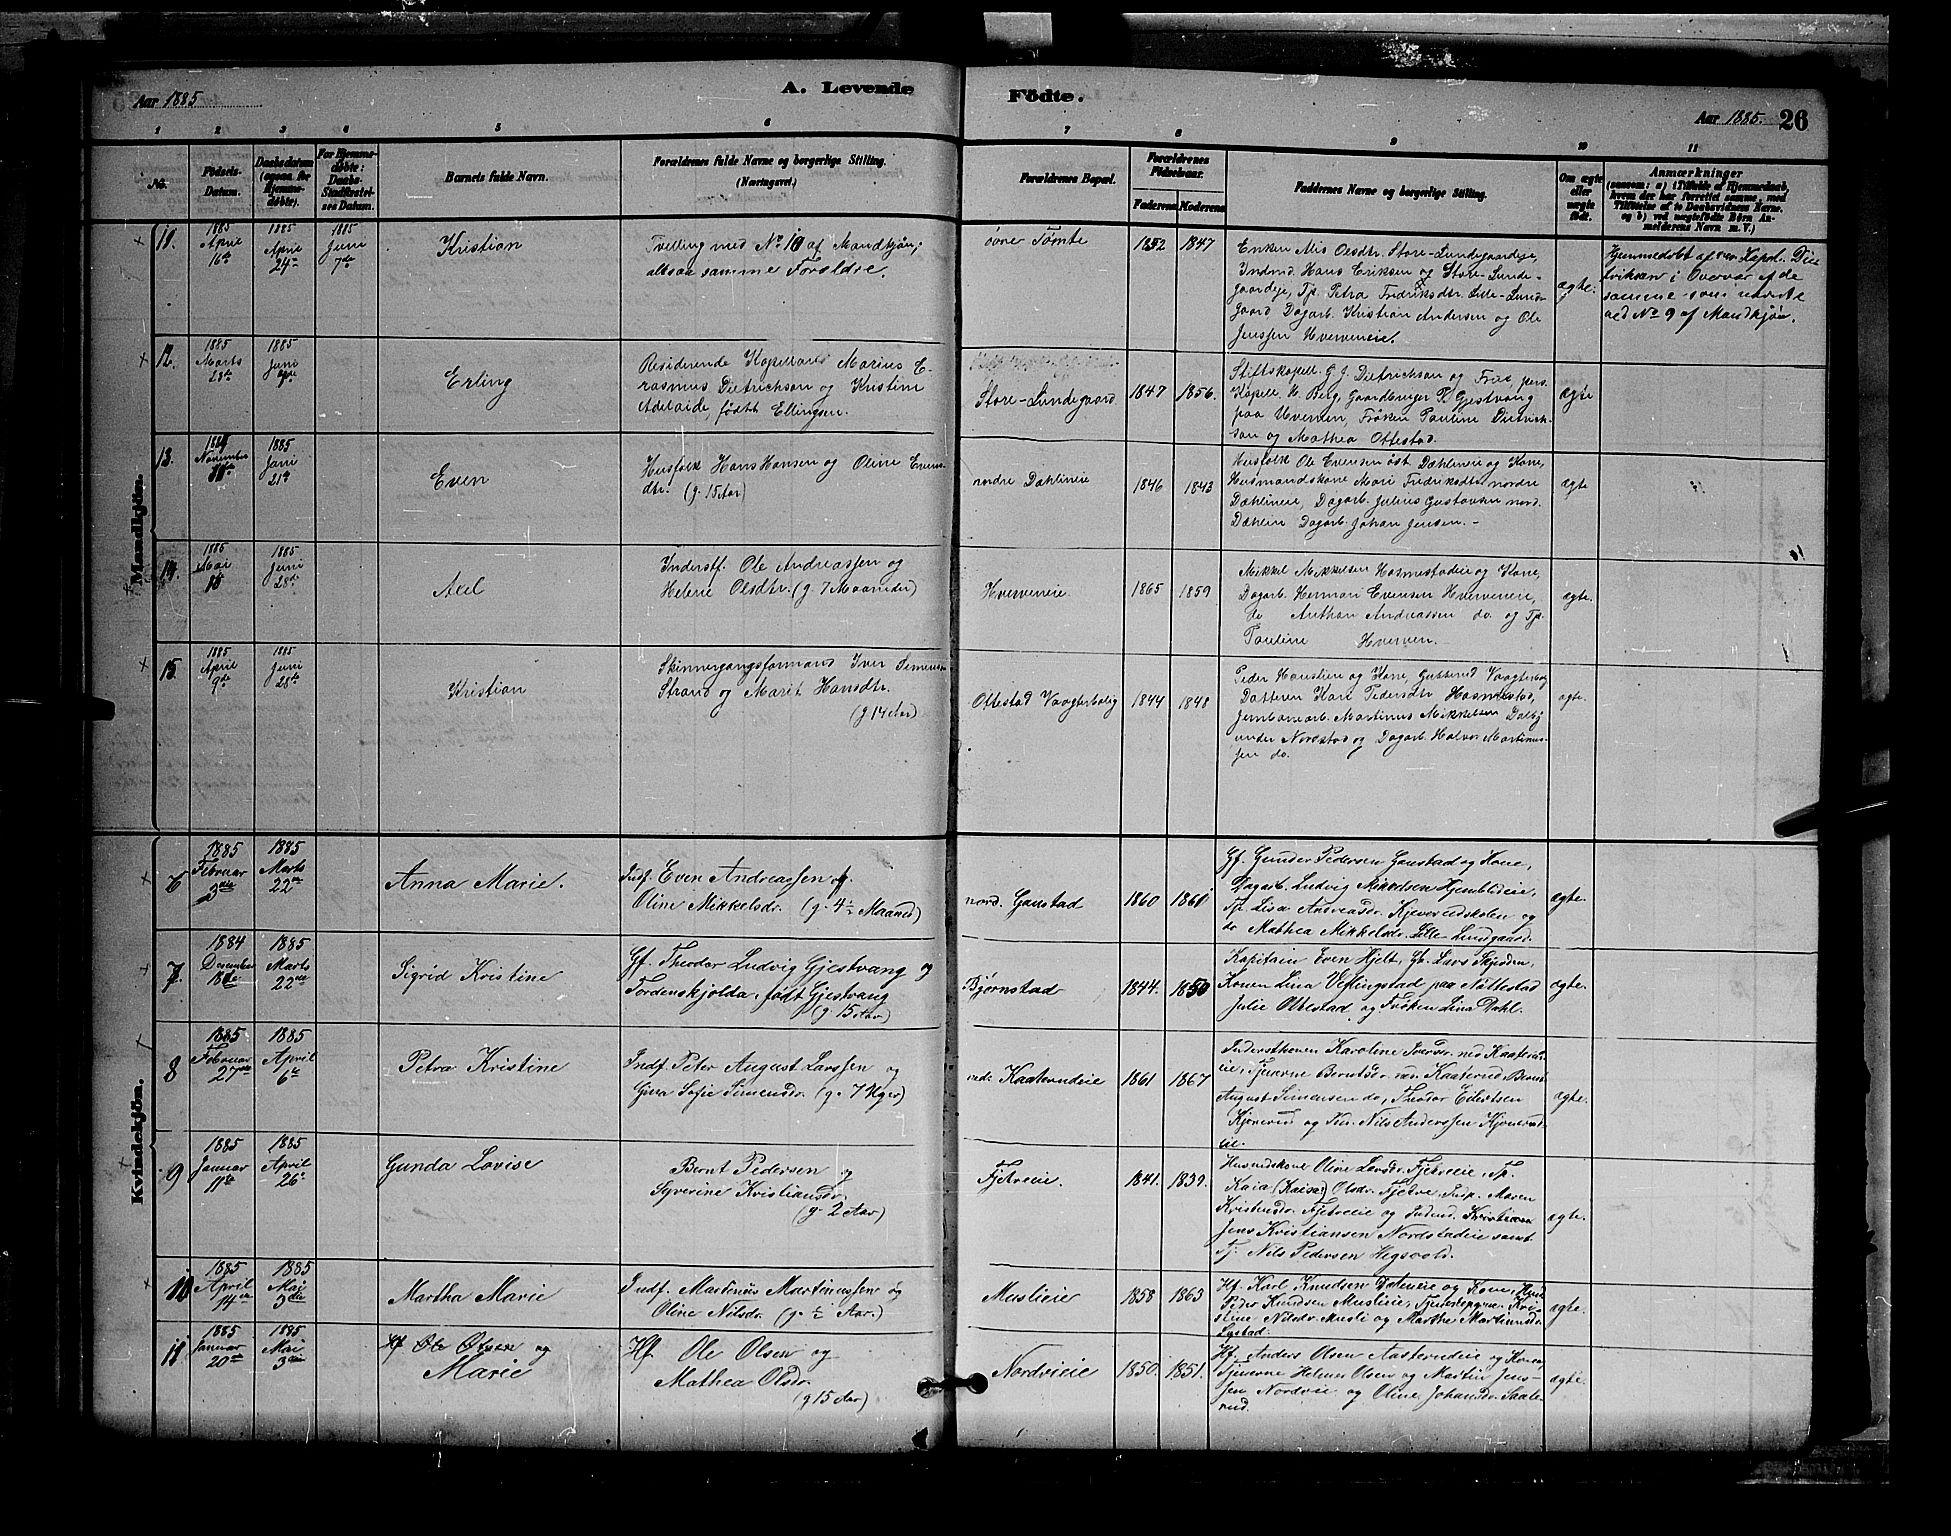 Aar 1885
A. Levende
Födte.
Aar 1885.
26
1 2 3 4 5 6 7 8 9 10 11
No.
Födsels-
Datum.
Daabsdatum
(ogsaa for
Hjemme-
døbte).
For Hjemme-
døbte:
Daabs-
Stadfæstel-
ses Datum.
Barnets fulde Navn.
Forældrenes fulde Navne og borgerlige Stilling.
(Næringsvei.)
Forældrenes Bopæl.
Forældrenes
Födselsaar.
Faderens
Moderens
Faddernes Navne og borgerlige Stilling.
Om ægte
eller
uægte
født.
Anmærkninger
(saasom: a) i Tilfælde af Hjemmedaab,
hvem der har forrettet samme, med
Tilføielse af to Daabsvidners Navne.
og b) ved uægtefødte Börn An-
melderens Navn m. V.)
Mandkjön.
11.
1885
April
16de
1885
April
24de
1885
Juni
7de
Kristian
Tvelling med No 10 af Mandkjön;
altsaa samme Forældre.
övre Tömte
1852
1847
Enken Mis Olsdtr. Store-Lundegaardeje,
Inderst. Hans Eriksen og Store-Lunde-
gaardeje, Tp. Petra Fredriksdtr. Lille-Lund-
gaard Dagarb. Kristian Andersen og Ole
Jenssen Hverveneie.
ægte.
Hjemmedøbt af res. Kapel. Die-
triksen i Overvær af de
samme som nævnte
ved No 9 af Mandkjön.
12.
1885
Marts
28de
1885
Juni
7de
Erling
Residerende Kapellan Marius E-
rasmus Dietrichson og Kristine
Adelaide, født Ellingsen.
Store-Lundegaard
1847
1856.
Stiftskapell. G. J. Dietrichson og Frue, pers.
Kapell. M. Berg, Gaardbruger P. Gjestvang
paa Hverven, Frøken Pauline Dietrich-
son og Mathea Ottestad.
ægte
13.
1884
November
11te
1885
Juni
21de
Even
Husfolk Hans Hansen og Oline Evens-
dtr. (g. 15 Aar)
nordre Dæhlineie
1846
1843
Husfolk Ole Evensen öst. Dæhlineie og Kone,
Husmandskone Mari Fredriksdtr. nordre
Dæhlineie, Dagarb. Julius Gustavsen nord.
Dæhlin Dagarb. Johan Jensen.
ægte
14.
1885
Mai
15
1885
Juni
28de
Axel
Inderstf. Ole Andreassen og
Helene Olsdtr. (g. 7 Maaneder)
Hverveneie
1865
1859
Mikkel Mikkelsen Hosmestadeie og Kone,
Dagarb. Herman Evensen Hverveneie,
do Anthon Andreassen do. og Tp.
Pauline Hverven.
ægte.
15.
1885
April
9de
1885
Juni
28de
Kristian
Skinnergangsformand Iver Simensen
Strand og Marit Hansdtr.
(g. 14 Aar)
Ottestad Vogterbolig
1844
1848
Peder Haustien og Kone, Gutterud Vogterbo,
Datteren Kari Pedersdtr Hosmestad,
Jernbanearb. Martinus Mikkelsen Dalby
under Nordstad og Dagarb. Halvor Martinus-
sen do.
ægte.
Kvindekjön.
6
1885
Februar
3die
1885
Marts
22de
Anna Marie.
Indf. Even Andreassen og.
Oline Mikkelsdr. (g. 4½ Maaned)
nord. Gaustad
1860
1861
Gf. Gunder Pedersen Gaustad og Kone,
Dagarb. Ludvig Mikkelsen Hjemblideie,
Tp. Lisa Andreasdr. Kjeverudskolen og
do Mathea Mikkelsdr. Lille Lundgaard.
ægte.
7.
1884
December
18de
1885
Marts
22de
Sigrid Kristine
Gf. Theodor Ludvig Gjestvang og
Tordenskjolda, født Gjestvang
(g. 15 Aar)
Bjørnstad
1844.
1850
Kapitain Even Hjelt, Gb. Lars Skjoden,
Konen Lina Veflingstad paa Nøttestad
Julie Ottestad og Frøken Lina Dahl.
ægte.
8
1885
Februar
27de
1885
April
6te
Petra Kristine
Indf. Peter August Larssen og
Gina Sofie Simensdr. (g. 7 Uger)
ned. Kaaterudeie
1861
1867
Inderstkonen Karoline Iversdr. ned Kaaterud-
eie, Tjenerne Berntsdr. ned. Kaaterud, Bernt
August Simensen do, Theodor Eilertsen
Kjønerud og Nils Anderssen Kjønerud-
eie.
ægte.
9
1885
Januar
11te
1885
April
26de
Gunda Lovise
Bernt Pedersen og
Syverine Kristiansdr.
(g. 2 Aar)
Fjetreie.
1841.
1839.
Husmdskone Oline Larsdr. Fjetreie, Tp.
Kaia (Kaisa) Olsdr. Fjetre. Insp. Maren
Kristensdr. Fjetreie og Inderst. Kristiansen
Jens Kristiansen Nordstadeie samt
Tj. Nils Pedersen Hegsvold.
ægte.
10
1885
April
14de
1885
Mai
3die
Martha Marie
Indf. Martinus Martinussen og
Oline Nilsdr. (g. ½ Aar.)
Muslieie
1858
1863
Hf. Karl Knudsen Dæleneie og Kone,
Peder Knudsen Muslieie, Tjenestepigerne Kri-
stine Nilsdr. Musli og Marthe Martinusdr.
ægte.
11
1885
Januar
20de
1885
Mai
3die
Hf Ole Olsen og
Marie
Hf. Ole Olsen og
Mathea Olsdr.
(g 15 Aar)
Nordvieie
1850.
1851.
Hf. Anders Olsen Aasterudeie og Kone,
Tjenerne Helmer Olsen og Martin Jens-
sen Nordvie og Oline Johansdr. Saate-
rud.
ægte.